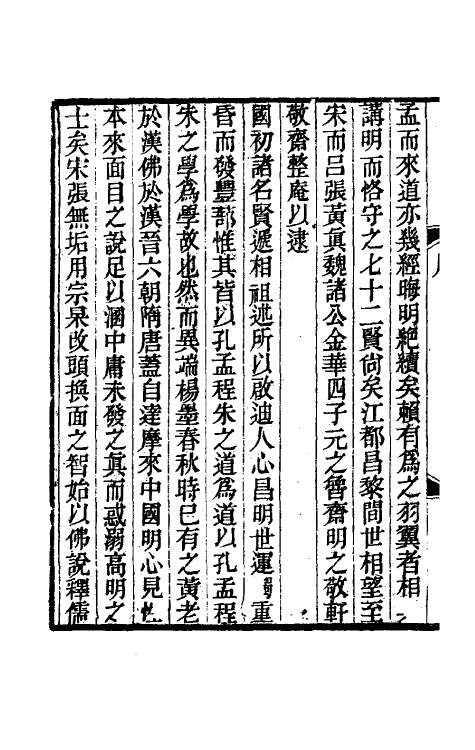 孟而來道亦幾經晦明絶續矣賴有爲之羽翼者相
講明而恪守之七十二賢尙矣江都昌黎間世相望至
宋而呂張黃眞魏諸公金華四子元之魯齋明之敬軒
敬齋整庵以逮
國初諸名賢遞相祖述所以啟迪人心昌明世運燭重
昏而發豐蔀惟其皆以孔孟程朱之道爲道以孔孟程
朱之學爲學故也然而異端楊墨春秋時已有之黃老
於漢佛於漢晉六朝隋唐蓋自達摩來中國明心見性
本來面目之說足以溷中庸未發之眞而惑溺高明之
士矣宋張無垢用宗杲改頭換面之智始以佛說釋儒